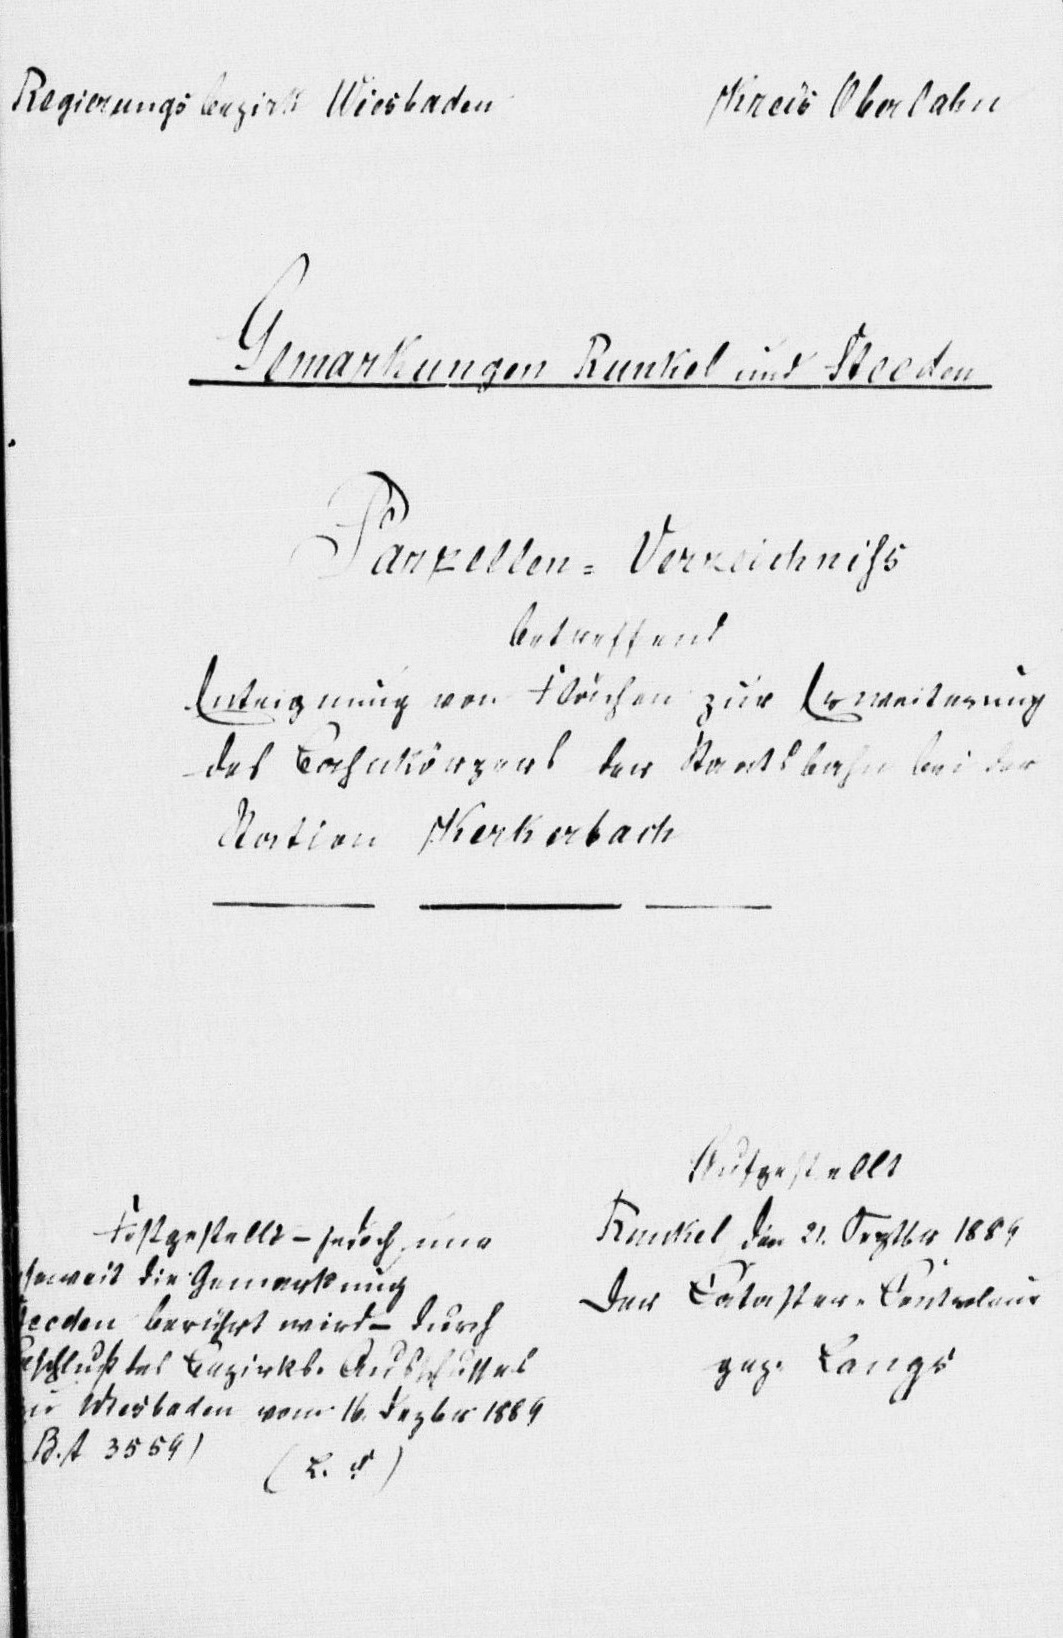 Regierungsbezirk Wiesbaden
Kreis Oberlahn
Gemarkungen Runkel und Steeden
Parzellen = Verzeichniss
betreffend
Enteignung von Flächen zur Erweiterung
des Bahnkörpers der Staatsbahn bei der
Station Kerkerbach
Aufgestellt
Runkel, den 21. Septbr 1889
Der Kataster-Controleur
gez. Langs
Festgestellt – jedoch nur
soweit die Gemarkung
Steeden berührt wird – durch
Beschluß des Bezirks-Ausschusses
zu Wiesbaden vom 16. Dezbr 1889
(B.A 3559)
(L. S)